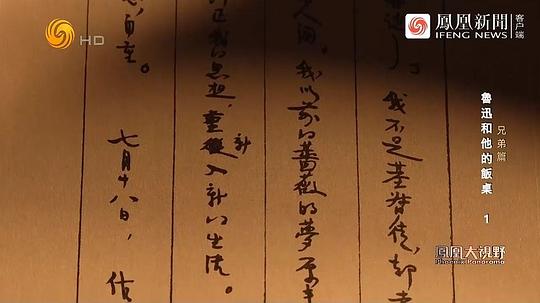 鳳凰新聞
客户端
iFENG NEWS
HD
魯迅和他的飯桌 1
兄弟篇
我不是基督徒，却
人间。我以前的薔薇的夢原来
正我的思想，重新入新的生活。
自重。
七月十八日，作
鳳凰大視野
Phoenix Panorama